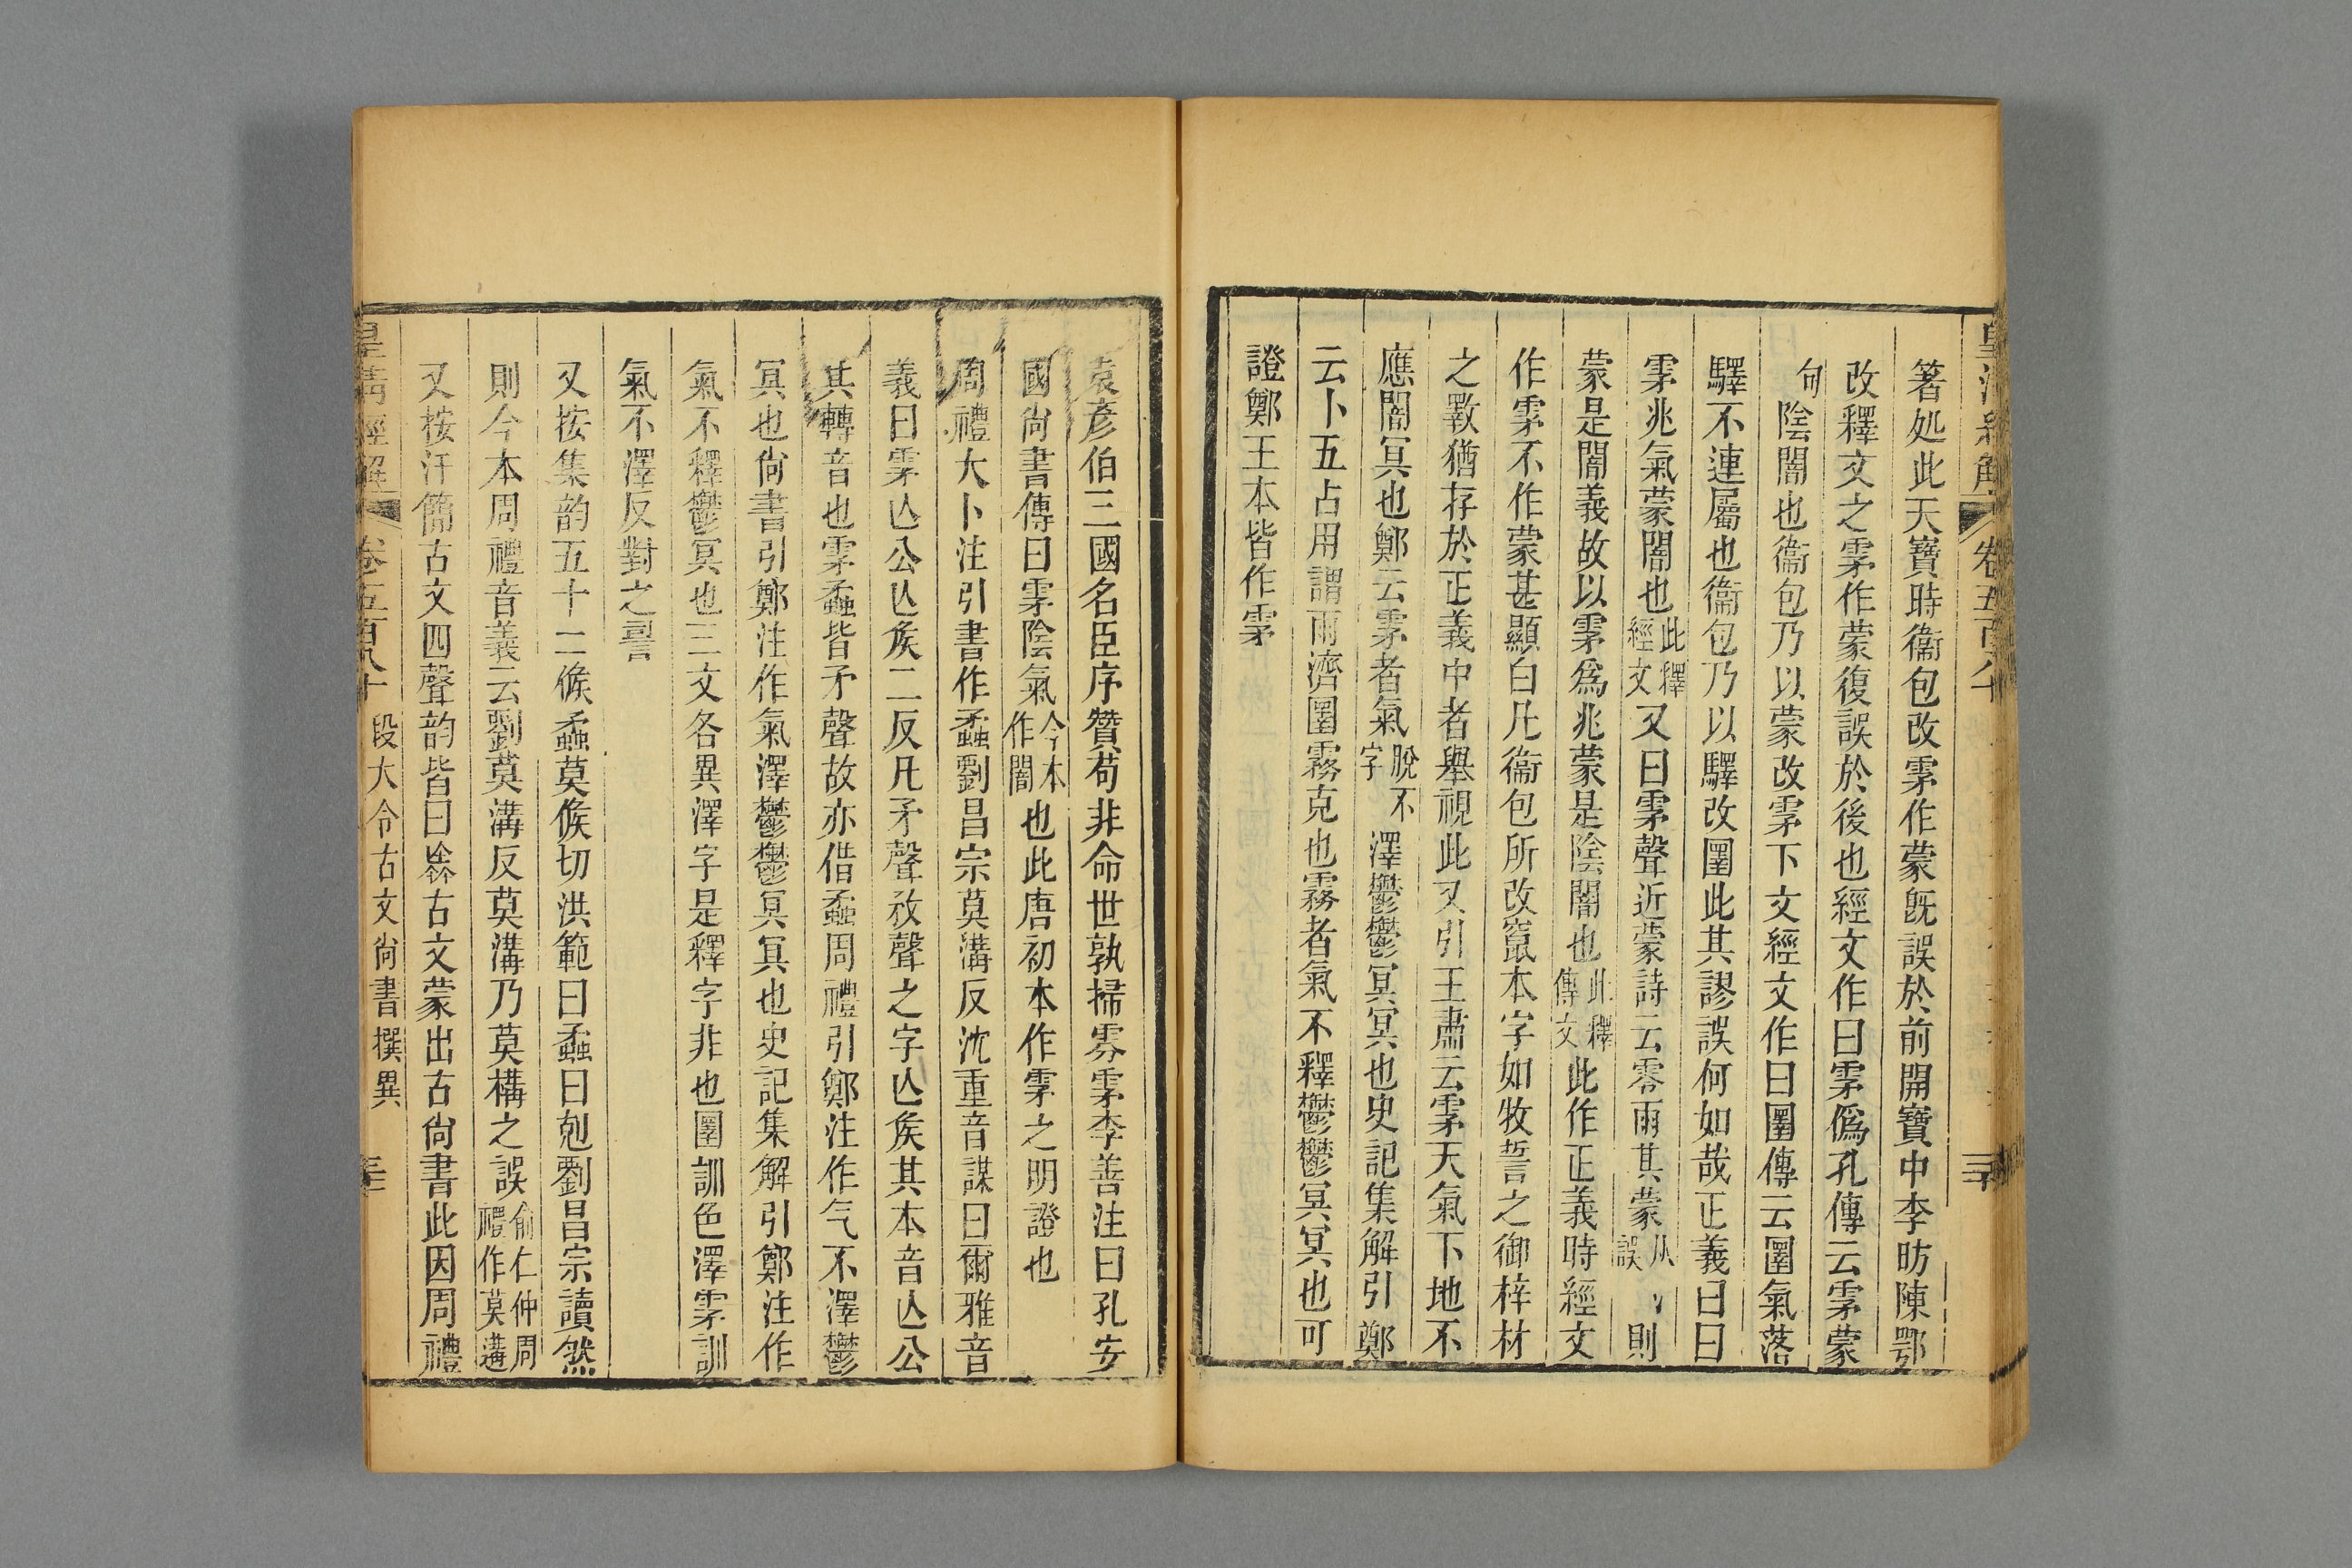 皇清經解 卷五百八十
箸処此天寶時衞包改雺作蒙旣誤於前開寶中李昉陳鄂
改釋文之雺作蒙復誤於後也經文作曰雺僞孔傳云雺蒙
句陰闇也衞包乃以蒙改雺下文經文作曰圛傳云圛氣落
驛不連屬也衞包乃以驛改圛此其謬誤何如哉正義曰曰
雺兆氣蒙闇也此釋經文又曰雺聲近蒙詩云零雨其蒙从氵誤則
蒙是闇義故以雺爲兆蒙是陰闇也此釋傳文此作正義時經文
作雺不作蒙甚顯白凡衞包所改竄本字如牧誓之御梓材
之斁猶存於正義中者舉視此又引王肅云雺天氣下地不
應闇冥也鄭云雺者氣脫不字澤鬱鬱冥冥也史記集解引鄭
云卜五占用謂雨濟圛霧克也霧者氣不釋鬱鬱冥冥也可
證鄭王本皆作雺
袁彥伯三國名臣序贊苟非命世孰掃雰雺李善注曰孔安
國尙書傳曰雺陰氣今本作闇也此唐初本作雺之明證也
周禮大卜注引書作蟊劉昌宗莫溝反沈重音謀曰爾雅音
義曰雺亾公亾矦二反凡矛聲敄聲之字亾矦其本音亾公
其轉音也雺蟊皆矛聲故亦借蟊周禮引鄭注作气不澤鬱
冥也尙書引鄭注作氣澤鬱鬱冥冥也史記集解引鄭注作
氣不釋鬱冥也三文各異澤字是釋字非也圛訓色澤雺訓
氣不澤反對之䛐
又按集韵五十二候蟊莫候切洪範曰蟊曰剋劉昌宗讀然
則今本周禮音義云劉莫溝反莫溝乃莫構之誤俞仁仲周禮作莫遘
又按汗簡古文四聲韵皆曰𩃭古文蒙出古尙書此因周禮
皇清經解 卷五百八十 段大令古文尙書撰異 三十一